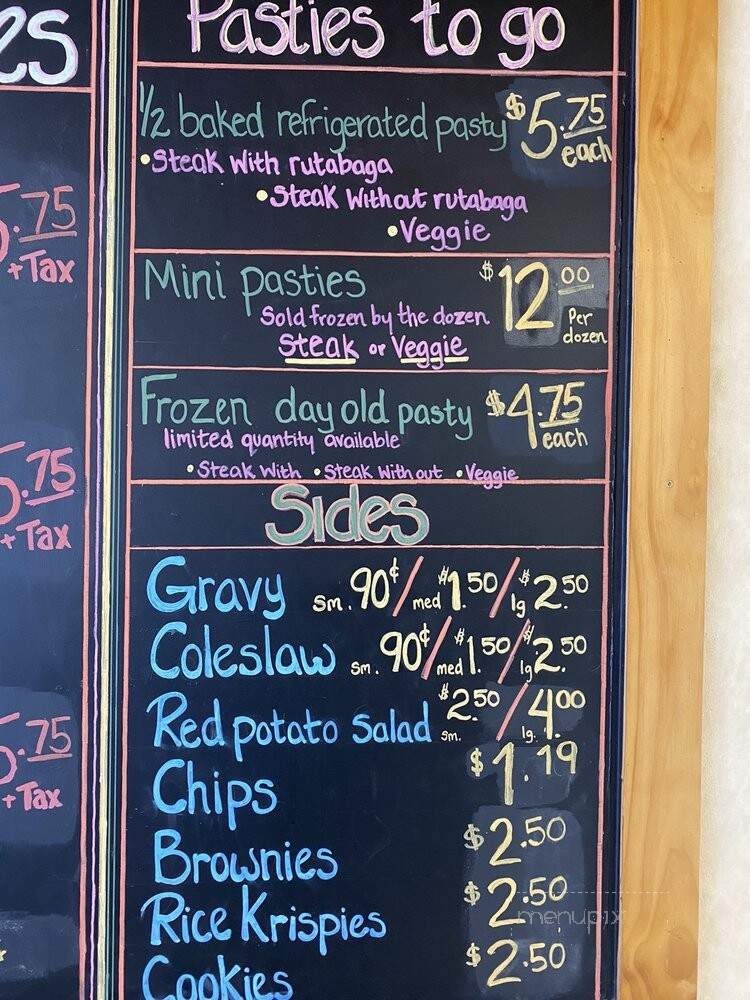 es
5.75
+Tax
5.75
+Tax
5.75
+Tax
Pasties to go
1/2 baked refrigerated pasty $5.75 each
•Steak with rutabaga
•Steak without rutabaga
•Veggie
Mini pasties $12.00 Per dozen
Sold frozen by the dozen
Steak or Veggie
Frozen day old pasty $4.75 each
limited quantity available
•Steak with •Steak without •Veggie
Sides
Gravy sm. 90¢/med $1.50/lg $2.50
Coleslaw sm. 90¢/med $1.50/lg $2.50
Red potato salad $2.50 sm. / lg. 4.00
Chips $1.19
Brownies $2.50
Rice Krispies $2.50
Cookies $2.50
menupix